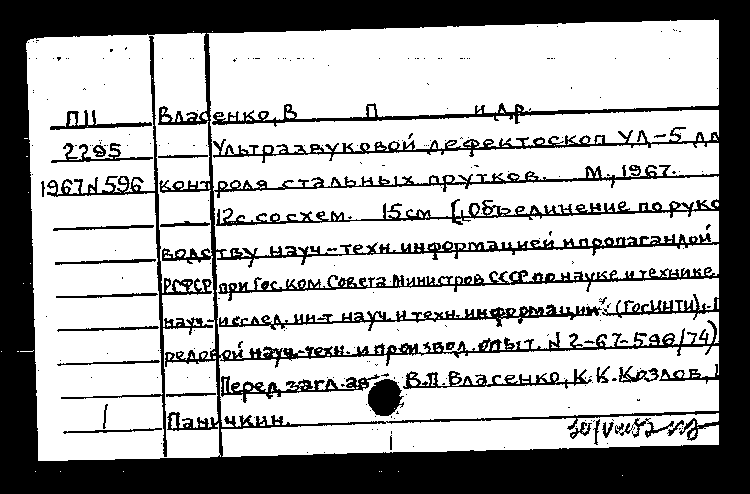 П11 Власенко, В П и др.
2295 Ультразвуковой дефектоскоп УД-5 дл
1967 N 596 контроля стальных прутков. М., 1967.
12с. со схем. 15 см [, Объединение по руко
водству науч.-техн. информацией и пропагандой
РСФСР при Гос. ком. Совета Министров СССР по науке и технике.
науч.-исслед. ин-т науч. и техн. информации (ГосИНТИ),
редовой науч.-техн. и производ. опыт. N 2-67-596/74)
Перед загл. авт В.П. Власенко, К.К. Козлов,
1 Паничкин.